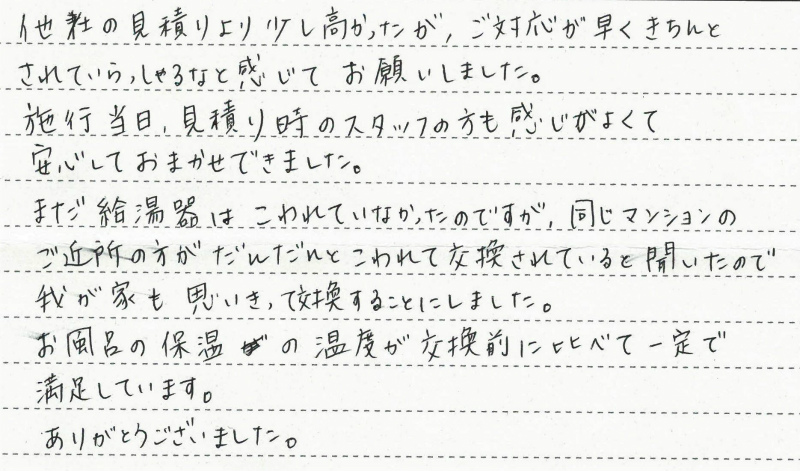 他社の見積りより少し高かったが、ご対応が早くきちんと
されていらっしゃるなと感じて お願いしました。
施行当日、見積り時のスタッフの方も感じがよくて
安心しておまかせできました。
まだ給湯器はこわれていなかったのですが、同じマンションの
ご近所の方がだんだんとこわれて交換されていると聞いたので
我が家も思いきって交換することにしました。
お風呂の保温の温度が交換前に比べて一定で
満足しています。
ありがとうございました。